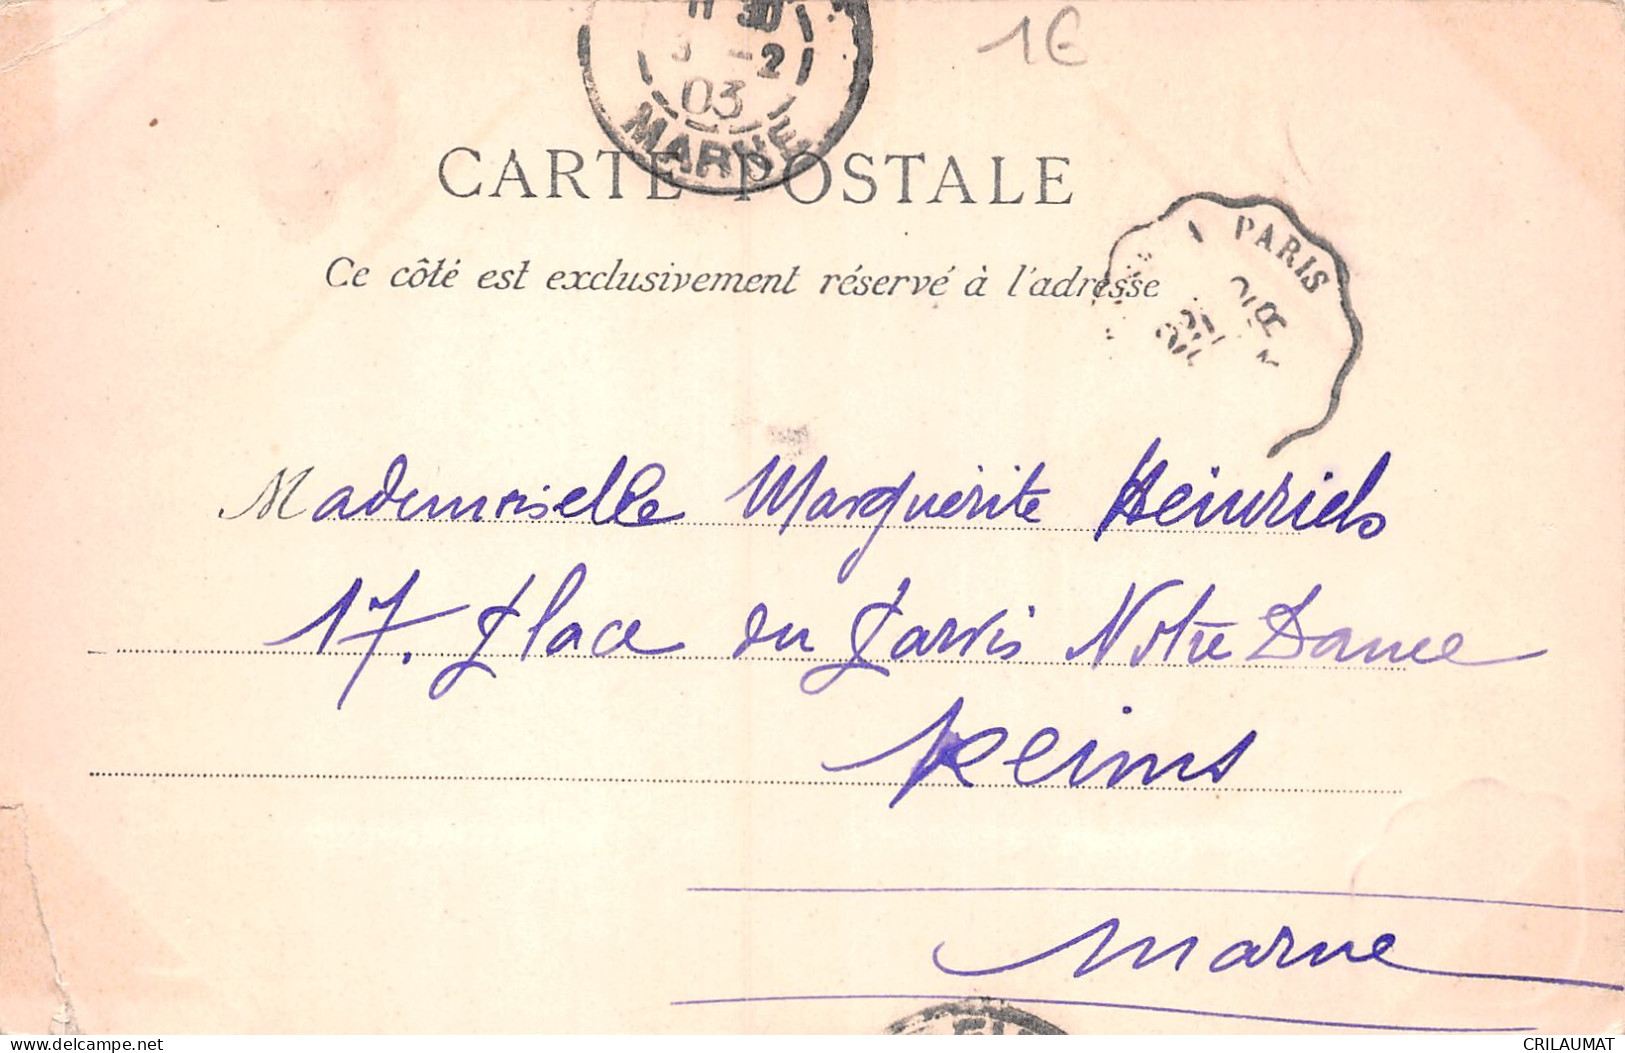 1€
30
-2
03
MARNE
CARTE POSTALE
Ce côté est exclusivement réservé à l'adresse
A PARIS
Mademoiselle Marguerite Heinrichs
17. Place du Parvis Notre Dame
Reims
Marne
www.delcampe.net
CRILAUMAT